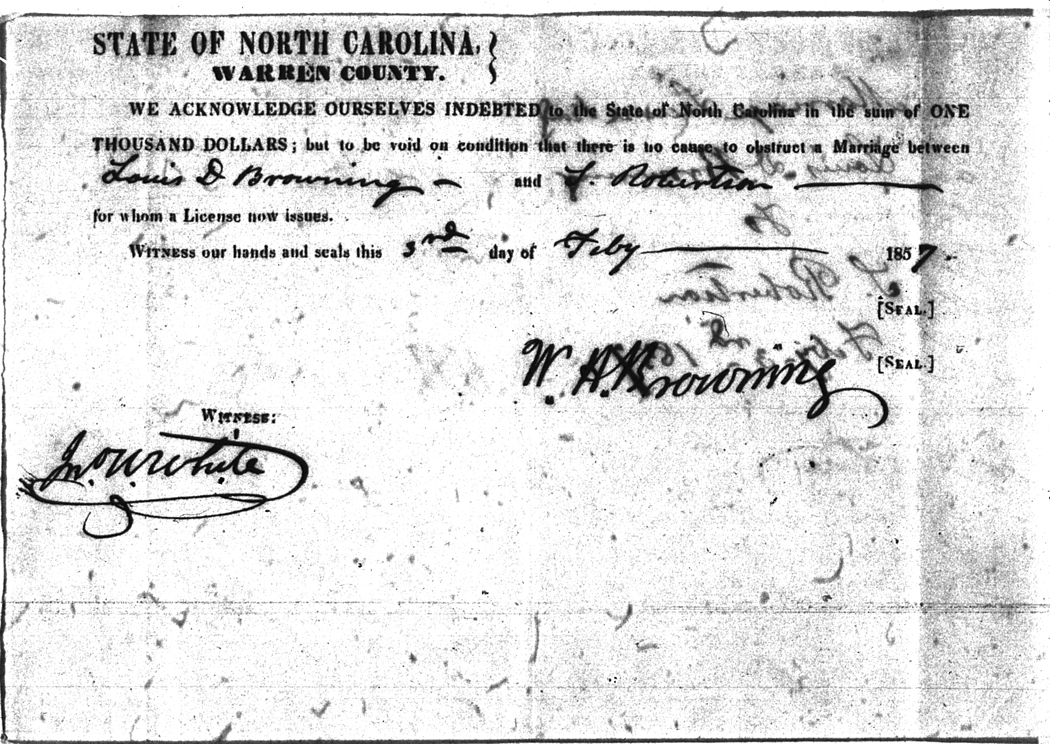 STATE OF NORTH CAROLINA,
WARREN COUNTY.
WE ACKNOWLEDGE OURSELVES INDEBTED to the State of North Carolina in the sum of ONE
THOUSAND DOLLARS; but to be void on condition that there is no cause to obstruct a Marriage between
Louis D Browning and F. Robertson
for whom a License now issues.
WITNESS our hands and seals this 3rd day of Feby 1857
[SEAL.]
W. A. Browning [SEAL.]
WITNESS:
Jno. W. White